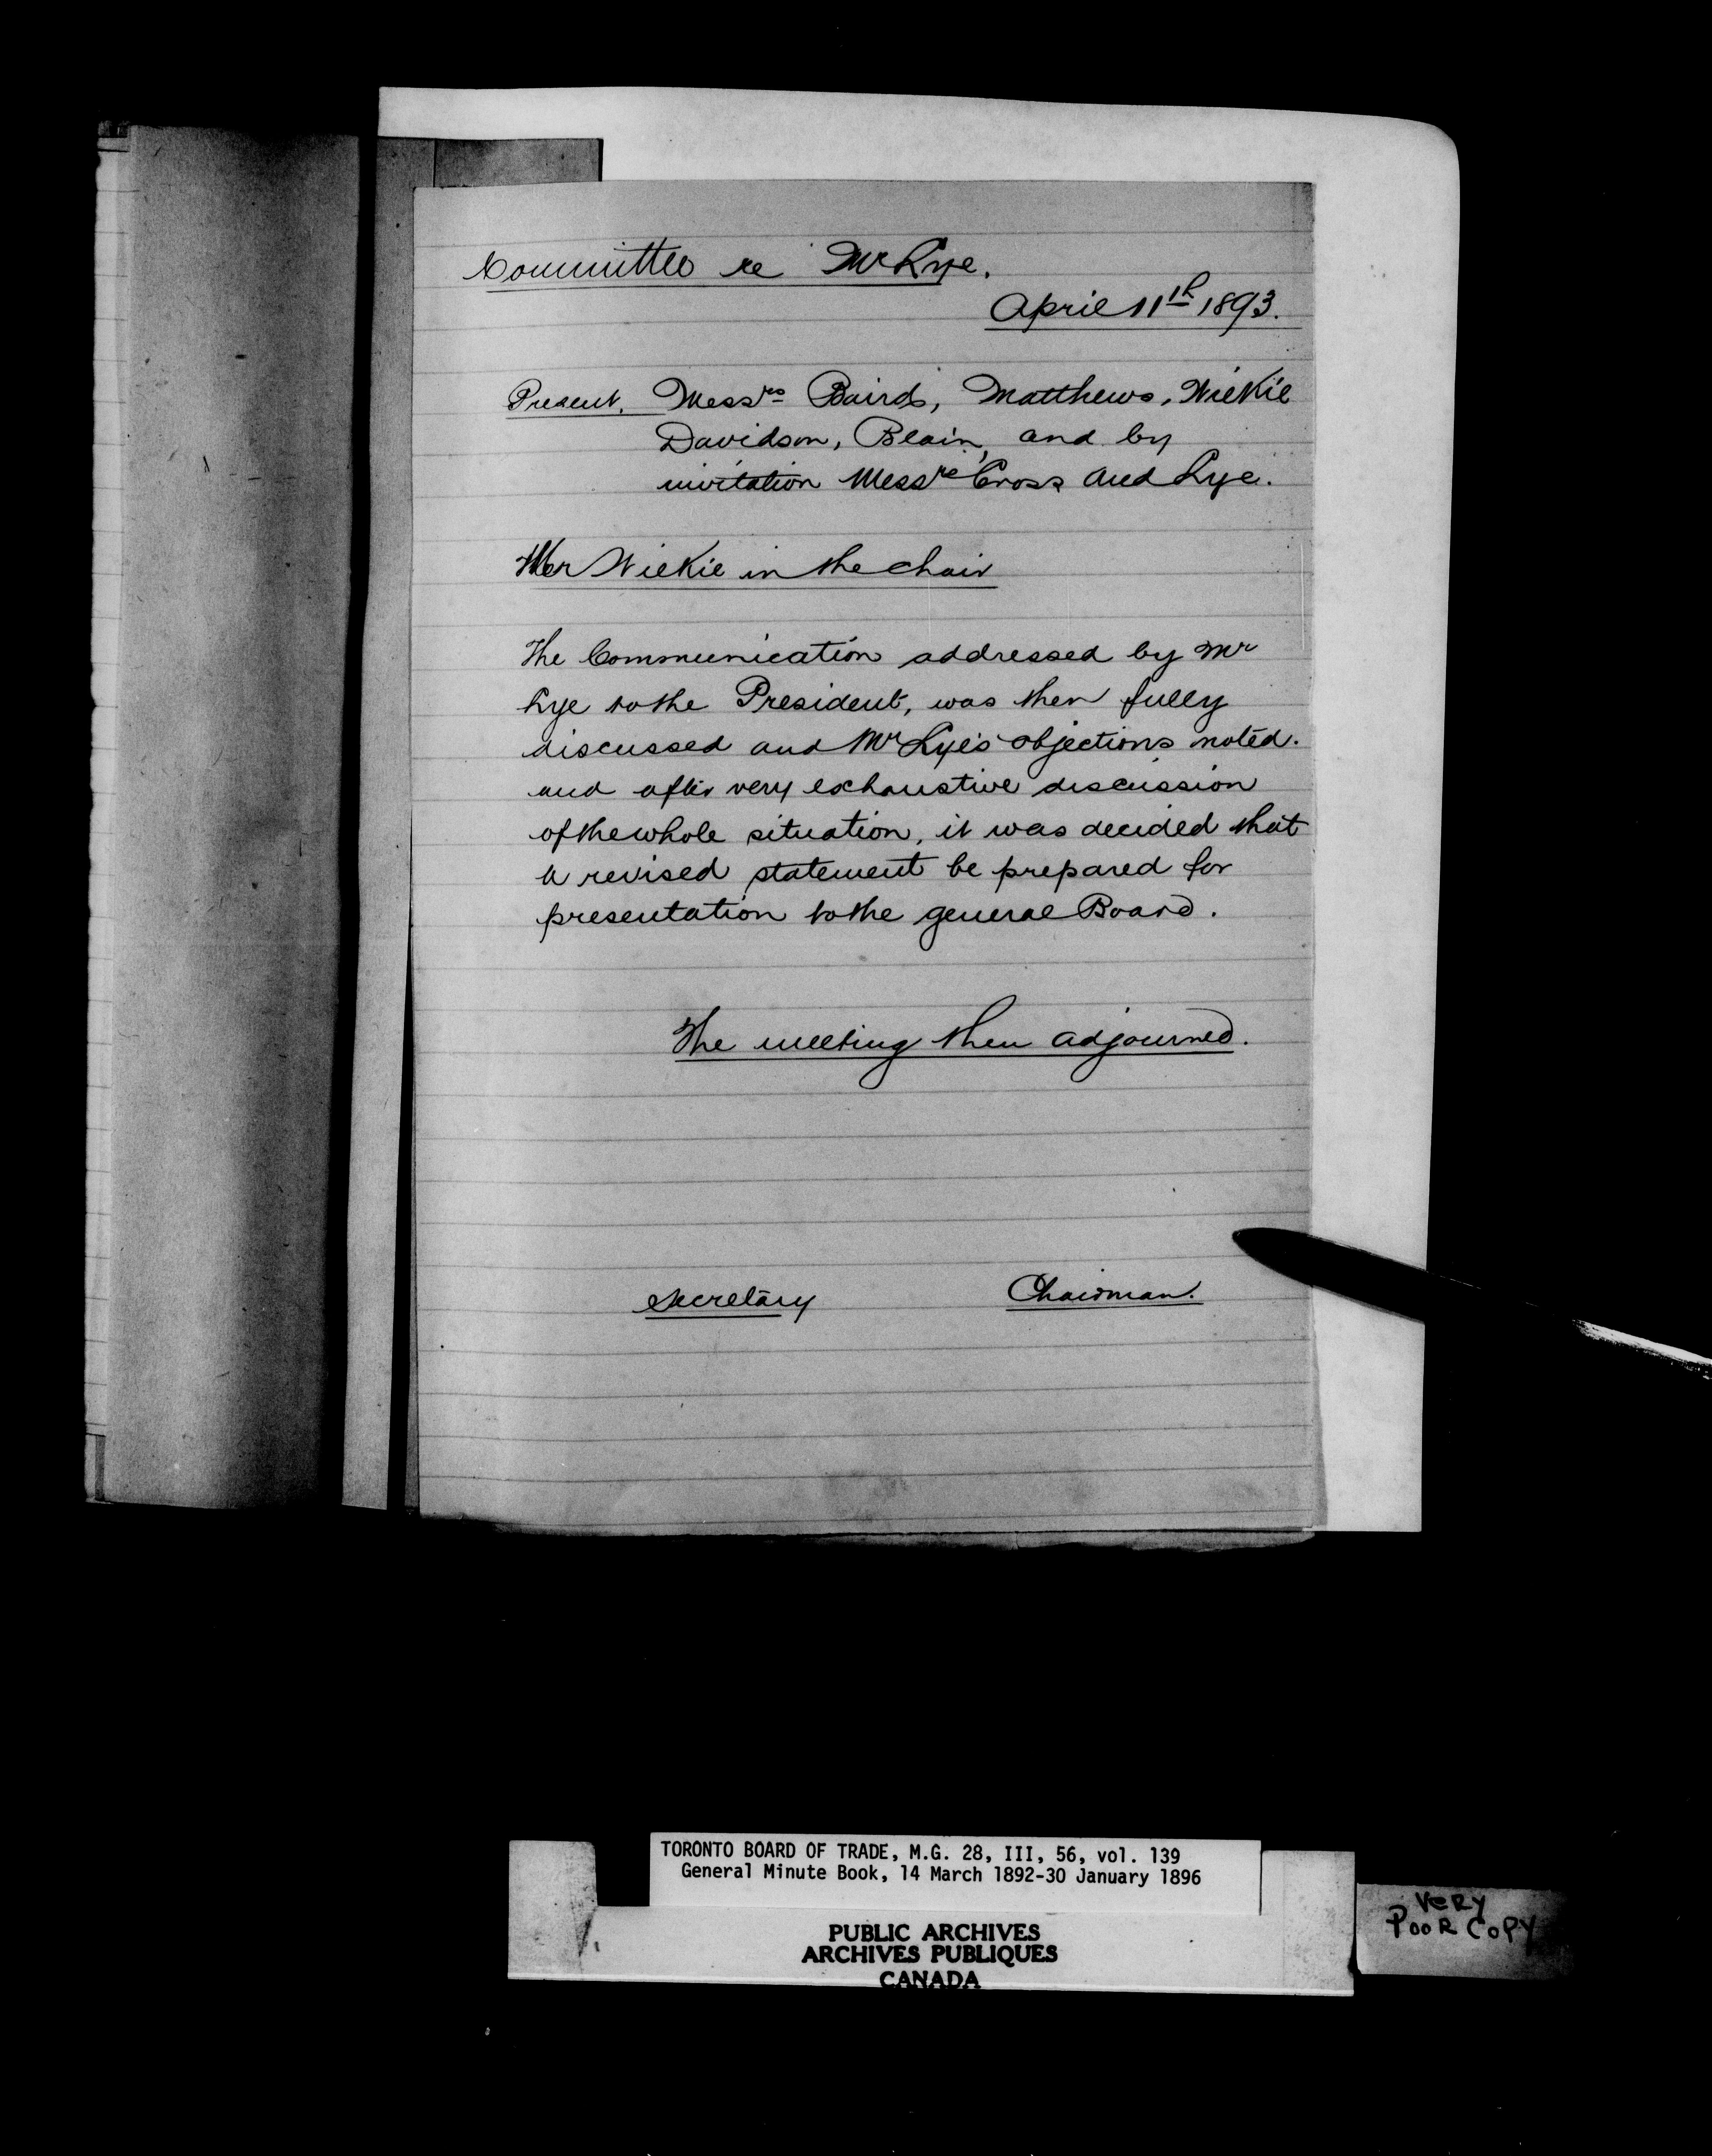 Committee re Mr Lye.
April 11th 1893.
Present. Messrs Baird, Matthews, Wilkie
Davidson, Blain, and by
invitation Messrs Cross and Lye.
Mr Wilkie in the chair
The Communication addressed by Mr
Lye to the President, was then fully
discussed and Mr Lye's objections noted.
and after very exhaustive discussion
of the whole situation, it was decided that
a revised statement be prepared for
presentation to the general Board.
The meeting then adjourned.
Secretary Chairman.
TORONTO BOARD OF TRADE, M.G. 28, III, 56, vol. 139
General Minute Book, 14 March 1892-30 January 1896
PUBLIC ARCHIVES
ARCHIVES PUBLIQUES
CANADA
VeRY
POOR COPY